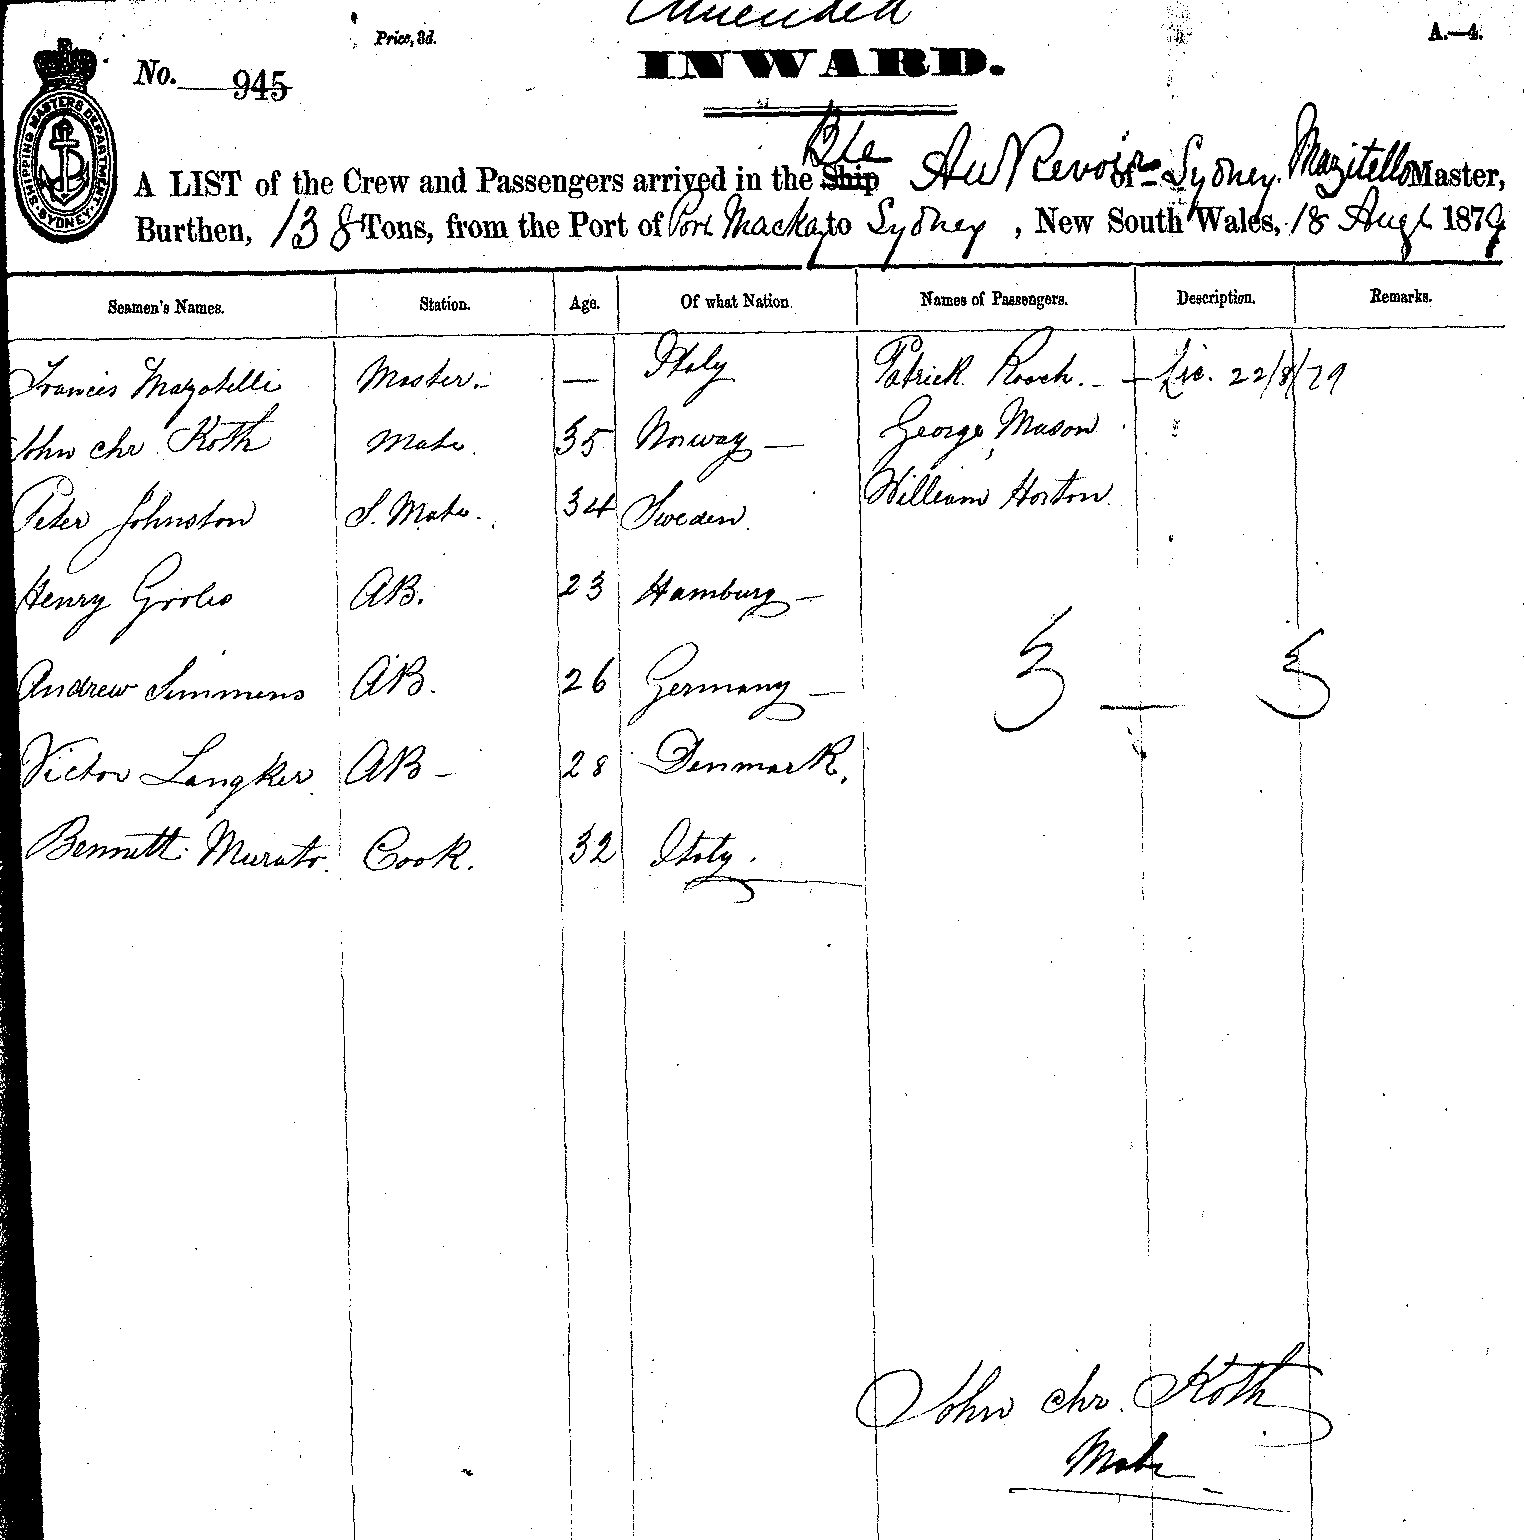 Amended
Price, 3d.
A.—4.
No. 945
INWARD.
SHIPPING MASTERS DEPARTMENT SYDNEY
A LIST of the Crew and Passengers arrived in the Ship Bk Au Revoir of Sydney. Mazitello Master,
Burthen, 138 Tons, from the Port of Port Mackay to Sydney, New South Wales, 18 Augt 1879
Seamen's Names. Station. Age. Of what Nation Names of Passengers. Description. Remarks.
Francis Mazotelli Master. — Italy Patrick Roach. — Lic. 22/8/79
John chr Koth Mate. 35 Norway — George Mason
Peter Johnston S. Mate. 34 Sweden William Horton
Henry AB. 23 Hamburg —
Andrew Simmens AB. 26 Germany —
3 — 3
Victor Langker AB — 28 Denmark.
Bennett Murato. Cook. 32 Italy.
John chr. Koth
Mate